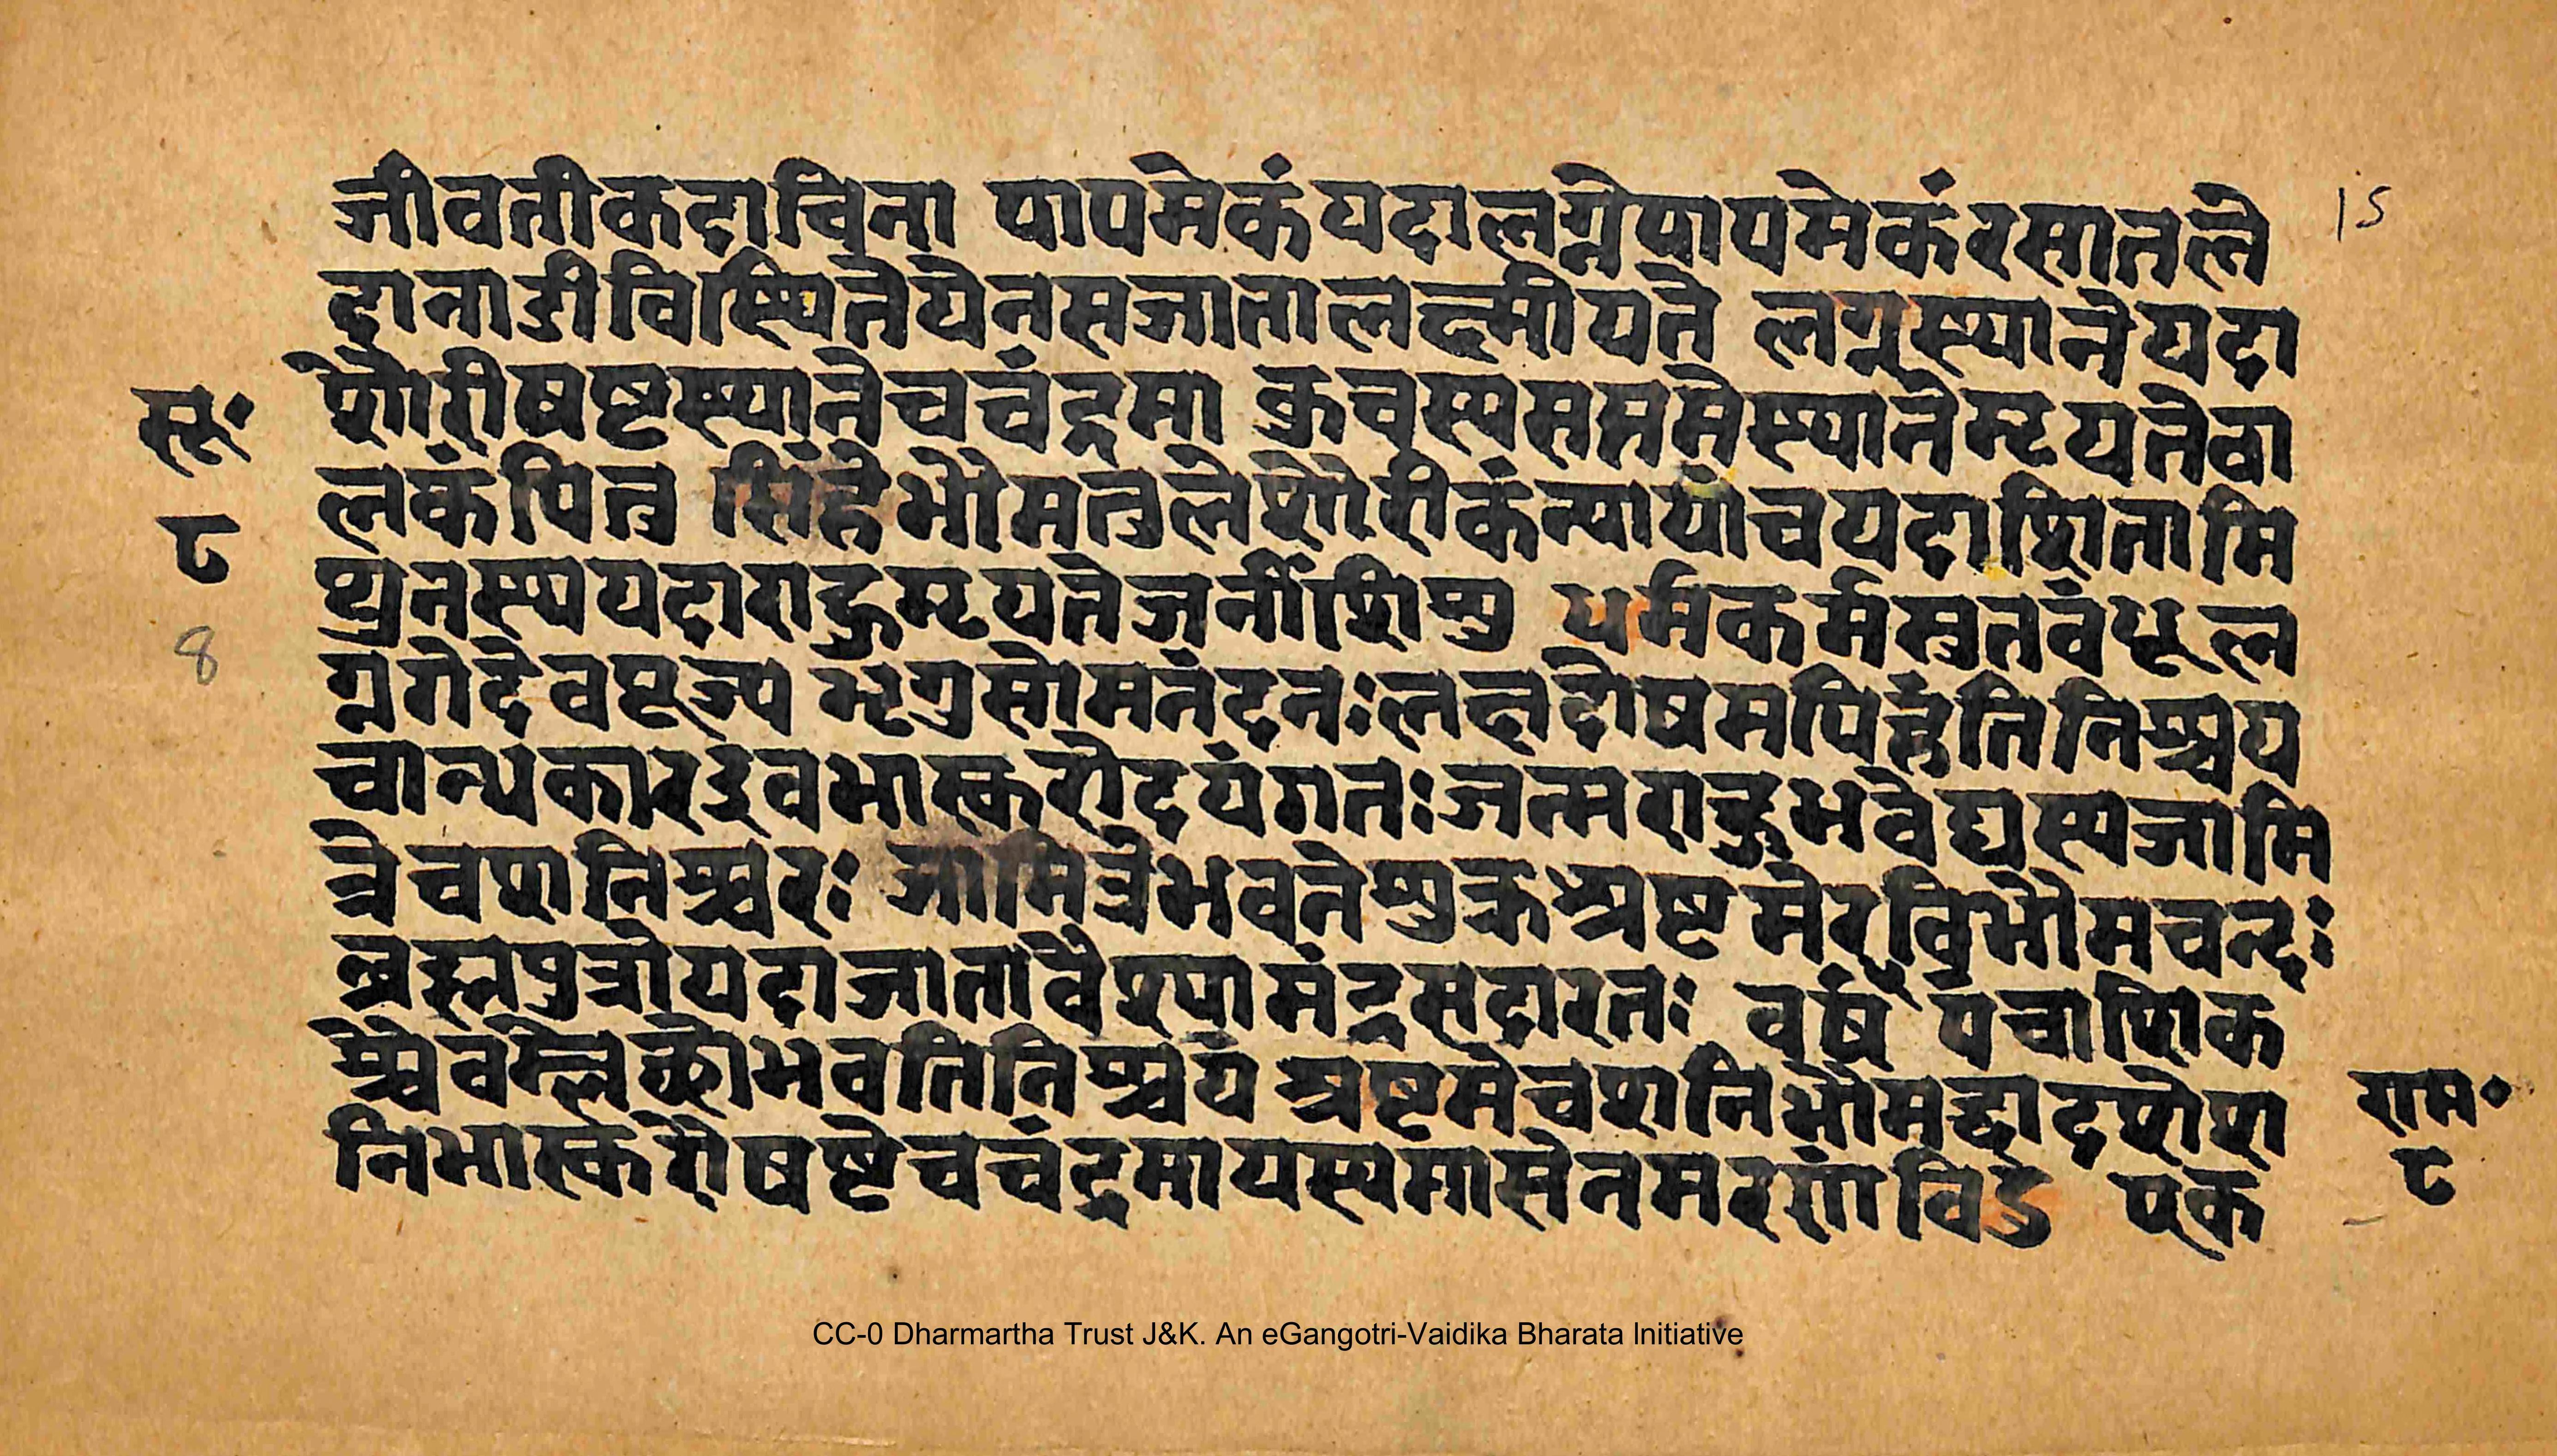 जीवतीकदाचिना पापमेकंयदालग्नेपापमेकंरसातले
द्वानाडीविस्थितेयेनसजातालक्ष्मीयते लग्नस्थानेयदा
शौरीषष्टस्थानेचचंद्रमा कुचस्यसप्तमेस्थानेमृयतेवा
लकंपित सिंहेभौमतुलेशौरीकंन्यायांचयदाशितामि
थुनस्ययदाराहुमृयतेजनींशिशु धर्मकर्मसुतवंधूल
ग्नगेदेवपूज्य भृगुसोमनंदनःलक्षदोषमपिहंतिनिश्चय
चान्धकारइवभास्करोदयंगतःजन्मराहुभवेद्यस्यजामि
त्रेचशनिश्चरः जामित्रेभवनेशुक्रअष्टमेरविभौमचन्द्रः
ब्रह्मपुत्रोयदाजातावैश्यामंद्रसदारतः वर्षे पचाशिक
श्चैवम्लेछोभवतिनिश्चय अष्टमेचशनिभौमद्वादशेश
निभास्करौषष्टेचचंद्रमायस्यमासेनमरणंविदु पंक
सूः
८
8
15
राम॰
८
CC-0 Dharmartha Trust J&K. An eGangotri-Vaidika Bharata Initiative